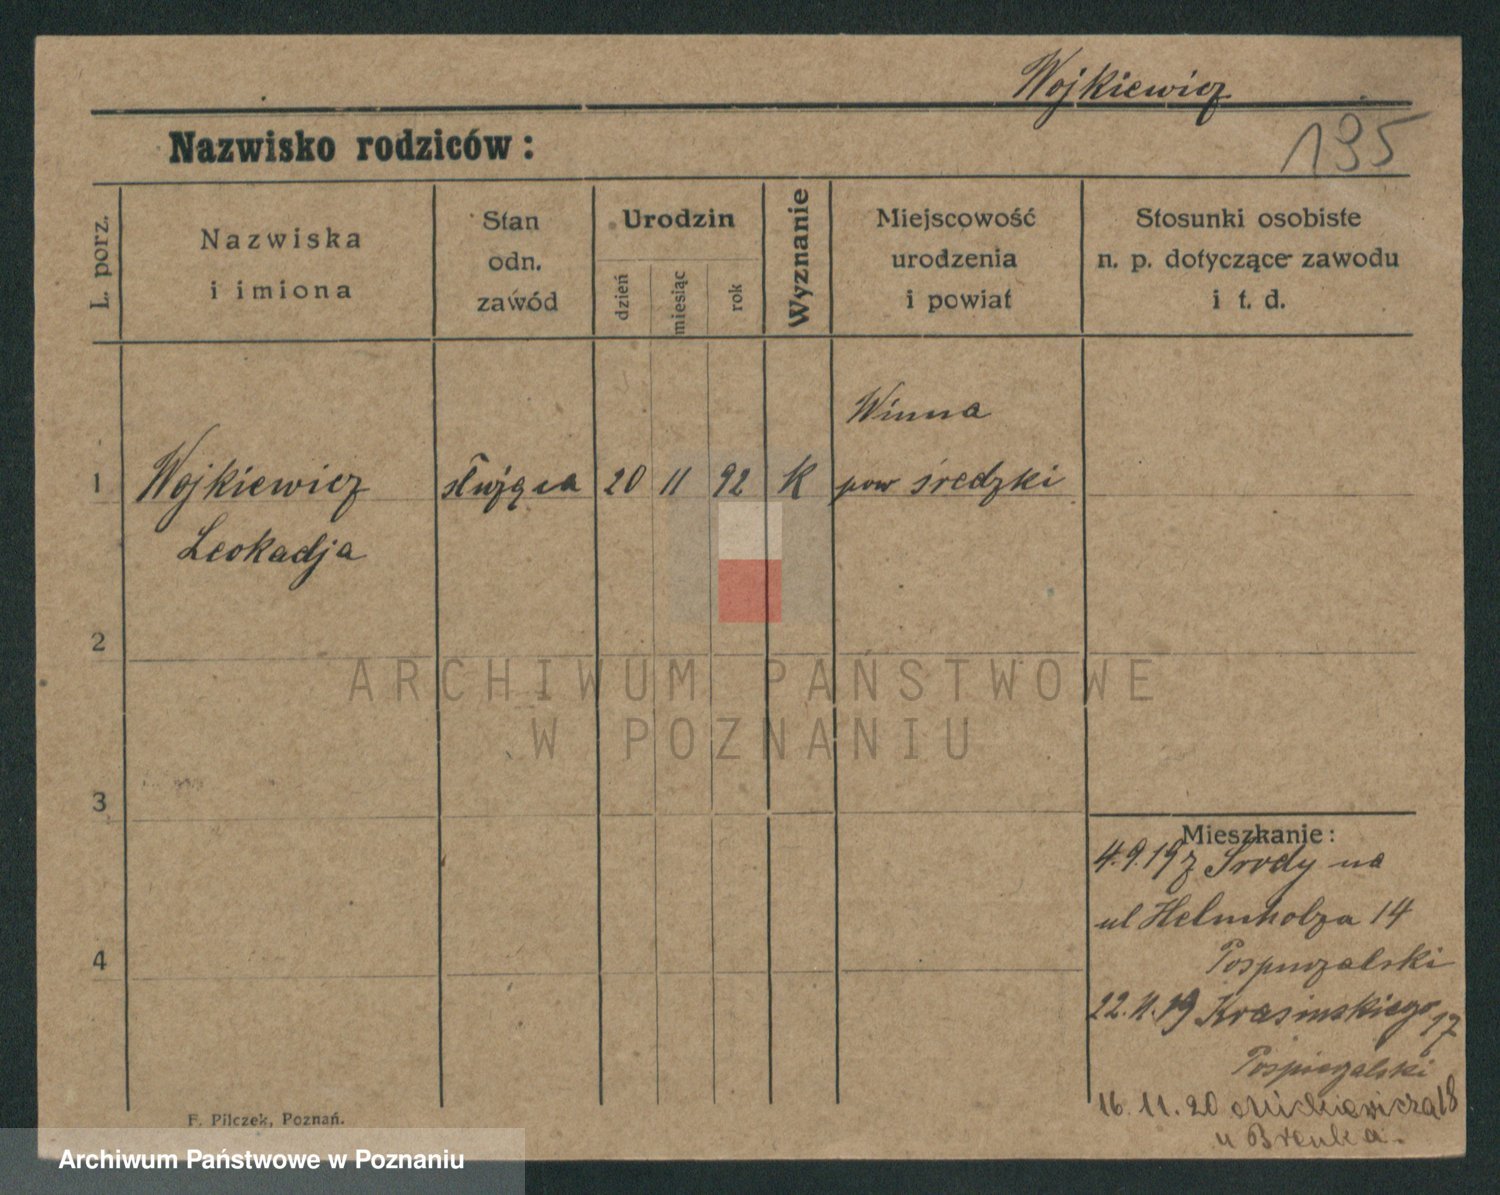 Wojkiewicz
Nazwisko rodziców:
195
L. porz.
Nazwiska
i imiona
Stan
odn.
zawód
Urodzin
dzień
miesiąc
rok
Wyznanie
Miejscowość
urodzenia
i powiat
Stosunki osobiste
n. p. dotyczące zawodu
i t. d.
Winna
1 Wojkiewicz służąca 20 11 92 K pow średzki
Leokadja
2
ARCHIWUM PAŃSTWOWE
W POZNANIU
3
4
Mieszkanie:
4.9.19 z Środy na
ul Helmholza 14
Pospieszalski
22.11.19 Krasinskiego 17
Pospieszalski
16.11.20 Mickiewicza 18
u Brenka.
F. Pilczek, Poznań.
Archiwum Państwowe w Poznaniu